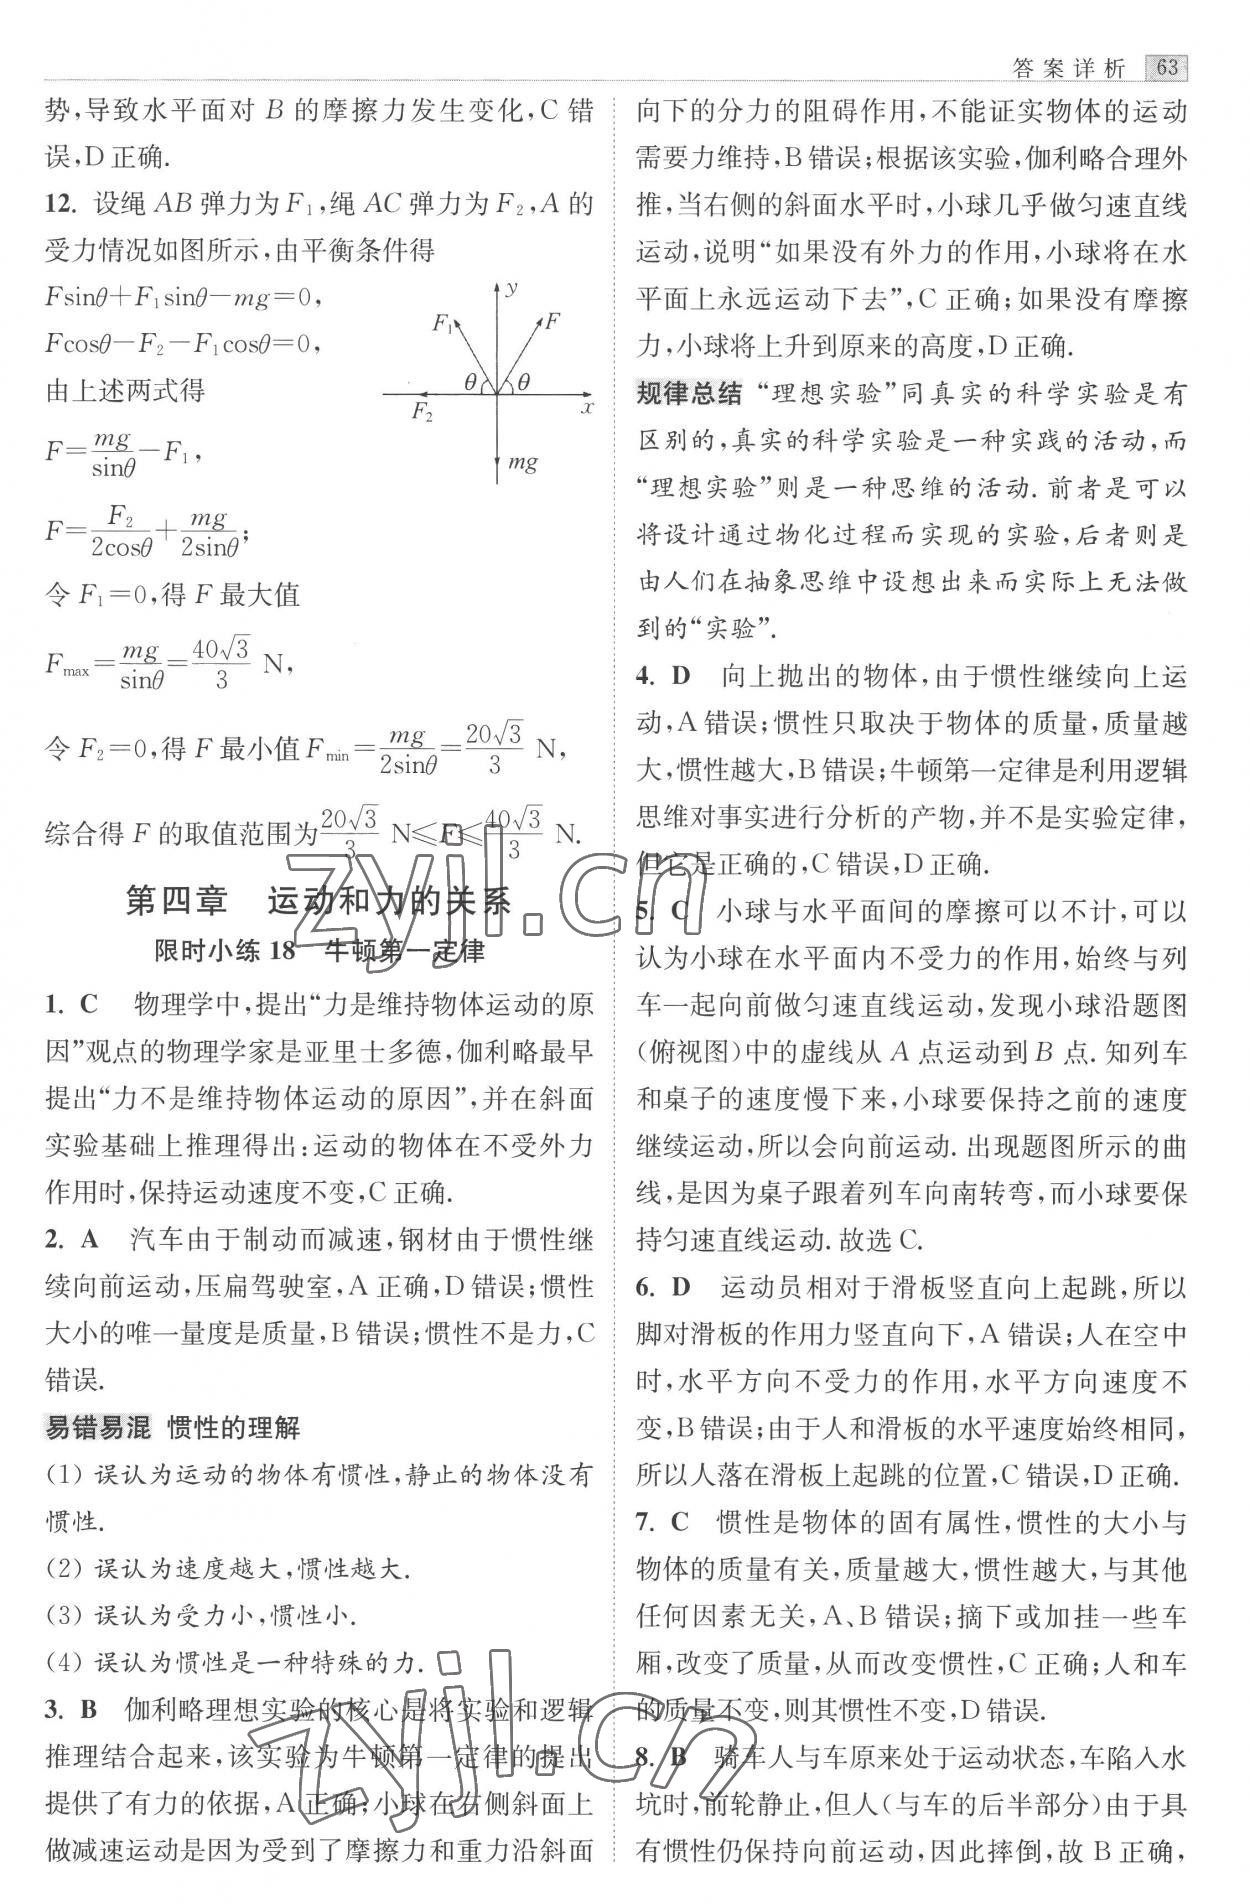 答案详析 63
势,导致水平面对 B 的摩擦力发生变化,C 错
误,D 正确.
12. 设绳 AB 弹力为 F₁,绳 AC 弹力为 F₂,A 的
受力情况如图所示,由平衡条件得
Fsinθ+F₁sinθ−mg=0,
Fcosθ−F₂−F₁cosθ=0,
由上述两式得
F=mg/sinθ−F₁,
F=F₂/2cosθ+mg/2sinθ;
y
F₁
F
θ
θ
F₂
x
mg
令 F₁=0,得 F 最大值
Fmax=mg/sinθ=40√3/3 N,
令 F₂=0,得 F 最小值 Fmin=mg/2sinθ=20√3/3 N,
综合得 F 的取值范围为20√3/3 N≤F≤40√3/3 N.
第四章 运动和力的关系
限时小练 18 牛顿第一定律
1. C 物理学中,提出“力是维持物体运动的原
因”观点的物理学家是亚里士多德,伽利略最早
提出“力不是维持物体运动的原因”,并在斜面
实验基础上推理得出:运动的物体在不受外力
作用时,保持运动速度不变,C 正确.
2. A 汽车由于制动而减速,钢材由于惯性继
续向前运动,压扁驾驶室,A 正确,D 错误;惯性
大小的唯一量度是质量,B 错误;惯性不是力,C
错误.
易错易混 惯性的理解
(1) 误认为运动的物体有惯性,静止的物体没有
惯性.
(2) 误认为速度越大,惯性越大.
(3) 误认为受力小,惯性小.
(4) 误认为惯性是一种特殊的力.
3. B 伽利略理想实验的核心是将实验和逻辑
推理结合起来,该实验为牛顿第一定律的提出
提供了有力的依据,A 正确;小球在右侧斜面上
做减速运动是因为受到了摩擦力和重力沿斜面
向下的分力的阻碍作用,不能证实物体的运动
需要力维持,B 错误;根据该实验,伽利略合理外
推,当右侧的斜面水平时,小球几乎做匀速直线
运动,说明“如果没有外力的作用,小球将在水
平面上永远运动下去”,C 正确;如果没有摩擦
力,小球将上升到原来的高度,D 正确.
规律总结 “理想实验”同真实的科学实验是有
区别的,真实的科学实验是一种实践的活动,而
“理想实验”则是一种思维的活动. 前者是可以
将设计通过物化过程而实现的实验,后者则是
由人们在抽象思维中设想出来而实际上无法做
到的“实验”.
4. D 向上抛出的物体,由于惯性继续向上运
动,A 错误;惯性只取决于物体的质量,质量越
大,惯性越大,B 错误;牛顿第一定律是利用逻辑
思维对事实进行分析的产物,并不是实验定律,
但它是正确的,C 错误,D 正确.
5. C 小球与水平面间的摩擦可以不计,可以
认为小球在水平面内不受力的作用,始终与列
车一起向前做匀速直线运动,发现小球沿题图
(俯视图)中的虚线从 A 点运动到 B 点. 知列车
和桌子的速度慢下来,小球要保持之前的速度
继续运动,所以会向前运动. 出现题图所示的曲
线,是因为桌子跟着列车向南转弯,而小球要保
持匀速直线运动. 故选 C.
6. D 运动员相对于滑板竖直向上起跳,所以
脚对滑板的作用力竖直向下,A 错误;人在空中
时,水平方向不受力的作用,水平方向速度不
变,B 错误;由于人和滑板的水平速度始终相同,
所以人落在滑板上起跳的位置,C 错误,D 正确.
7. C 惯性是物体的固有属性,惯性的大小与
物体的质量有关,质量越大,惯性越大,与其他
任何因素无关,A、B 错误;摘下或加挂一些车
厢,改变了质量,从而改变惯性,C 正确;人和车
的质量不变,则其惯性不变,D 错误.
8. B 骑车人与车原来处于运动状态,车陷入水
坑时,前轮静止,但人(与车的后半部分)由于具
有惯性仍保持向前运动,因此摔倒,故 B 正确,
zyjl.cn
zyjl.cn